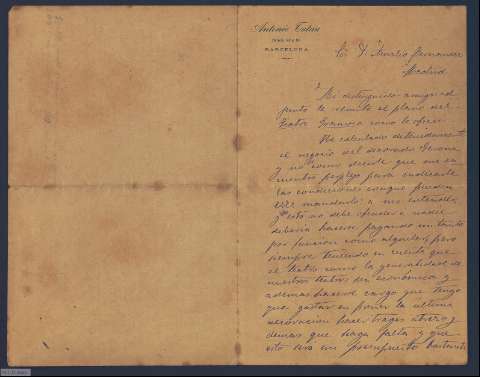 Antonio Tutau
BARCELONA
Sr. D. Aurelio
Madrid
Mi distinguido amigo: ad-
junto le remito el plano del
Teatro como le ofrecí.
He calculado detenidamente
el negocio del decorado
y no como decirle que me en-
cuentro perplejo para indicarle
las condiciones conque pueden
ser mandarlo: a mi entender,
y esto no debe ofender a nadie
deberia hacerse pagando un tanto
por funcion como alquiler, pero
siempre teniendo en cuenta que
el teatro como la generalidad de
nuestros teatros es economico y
ademas hacerse cargo que tengo
que gastar en poner la ultima
decoracion hacer trages atrezo y
demas que haga falta y que
esto es un presupuesto bastante